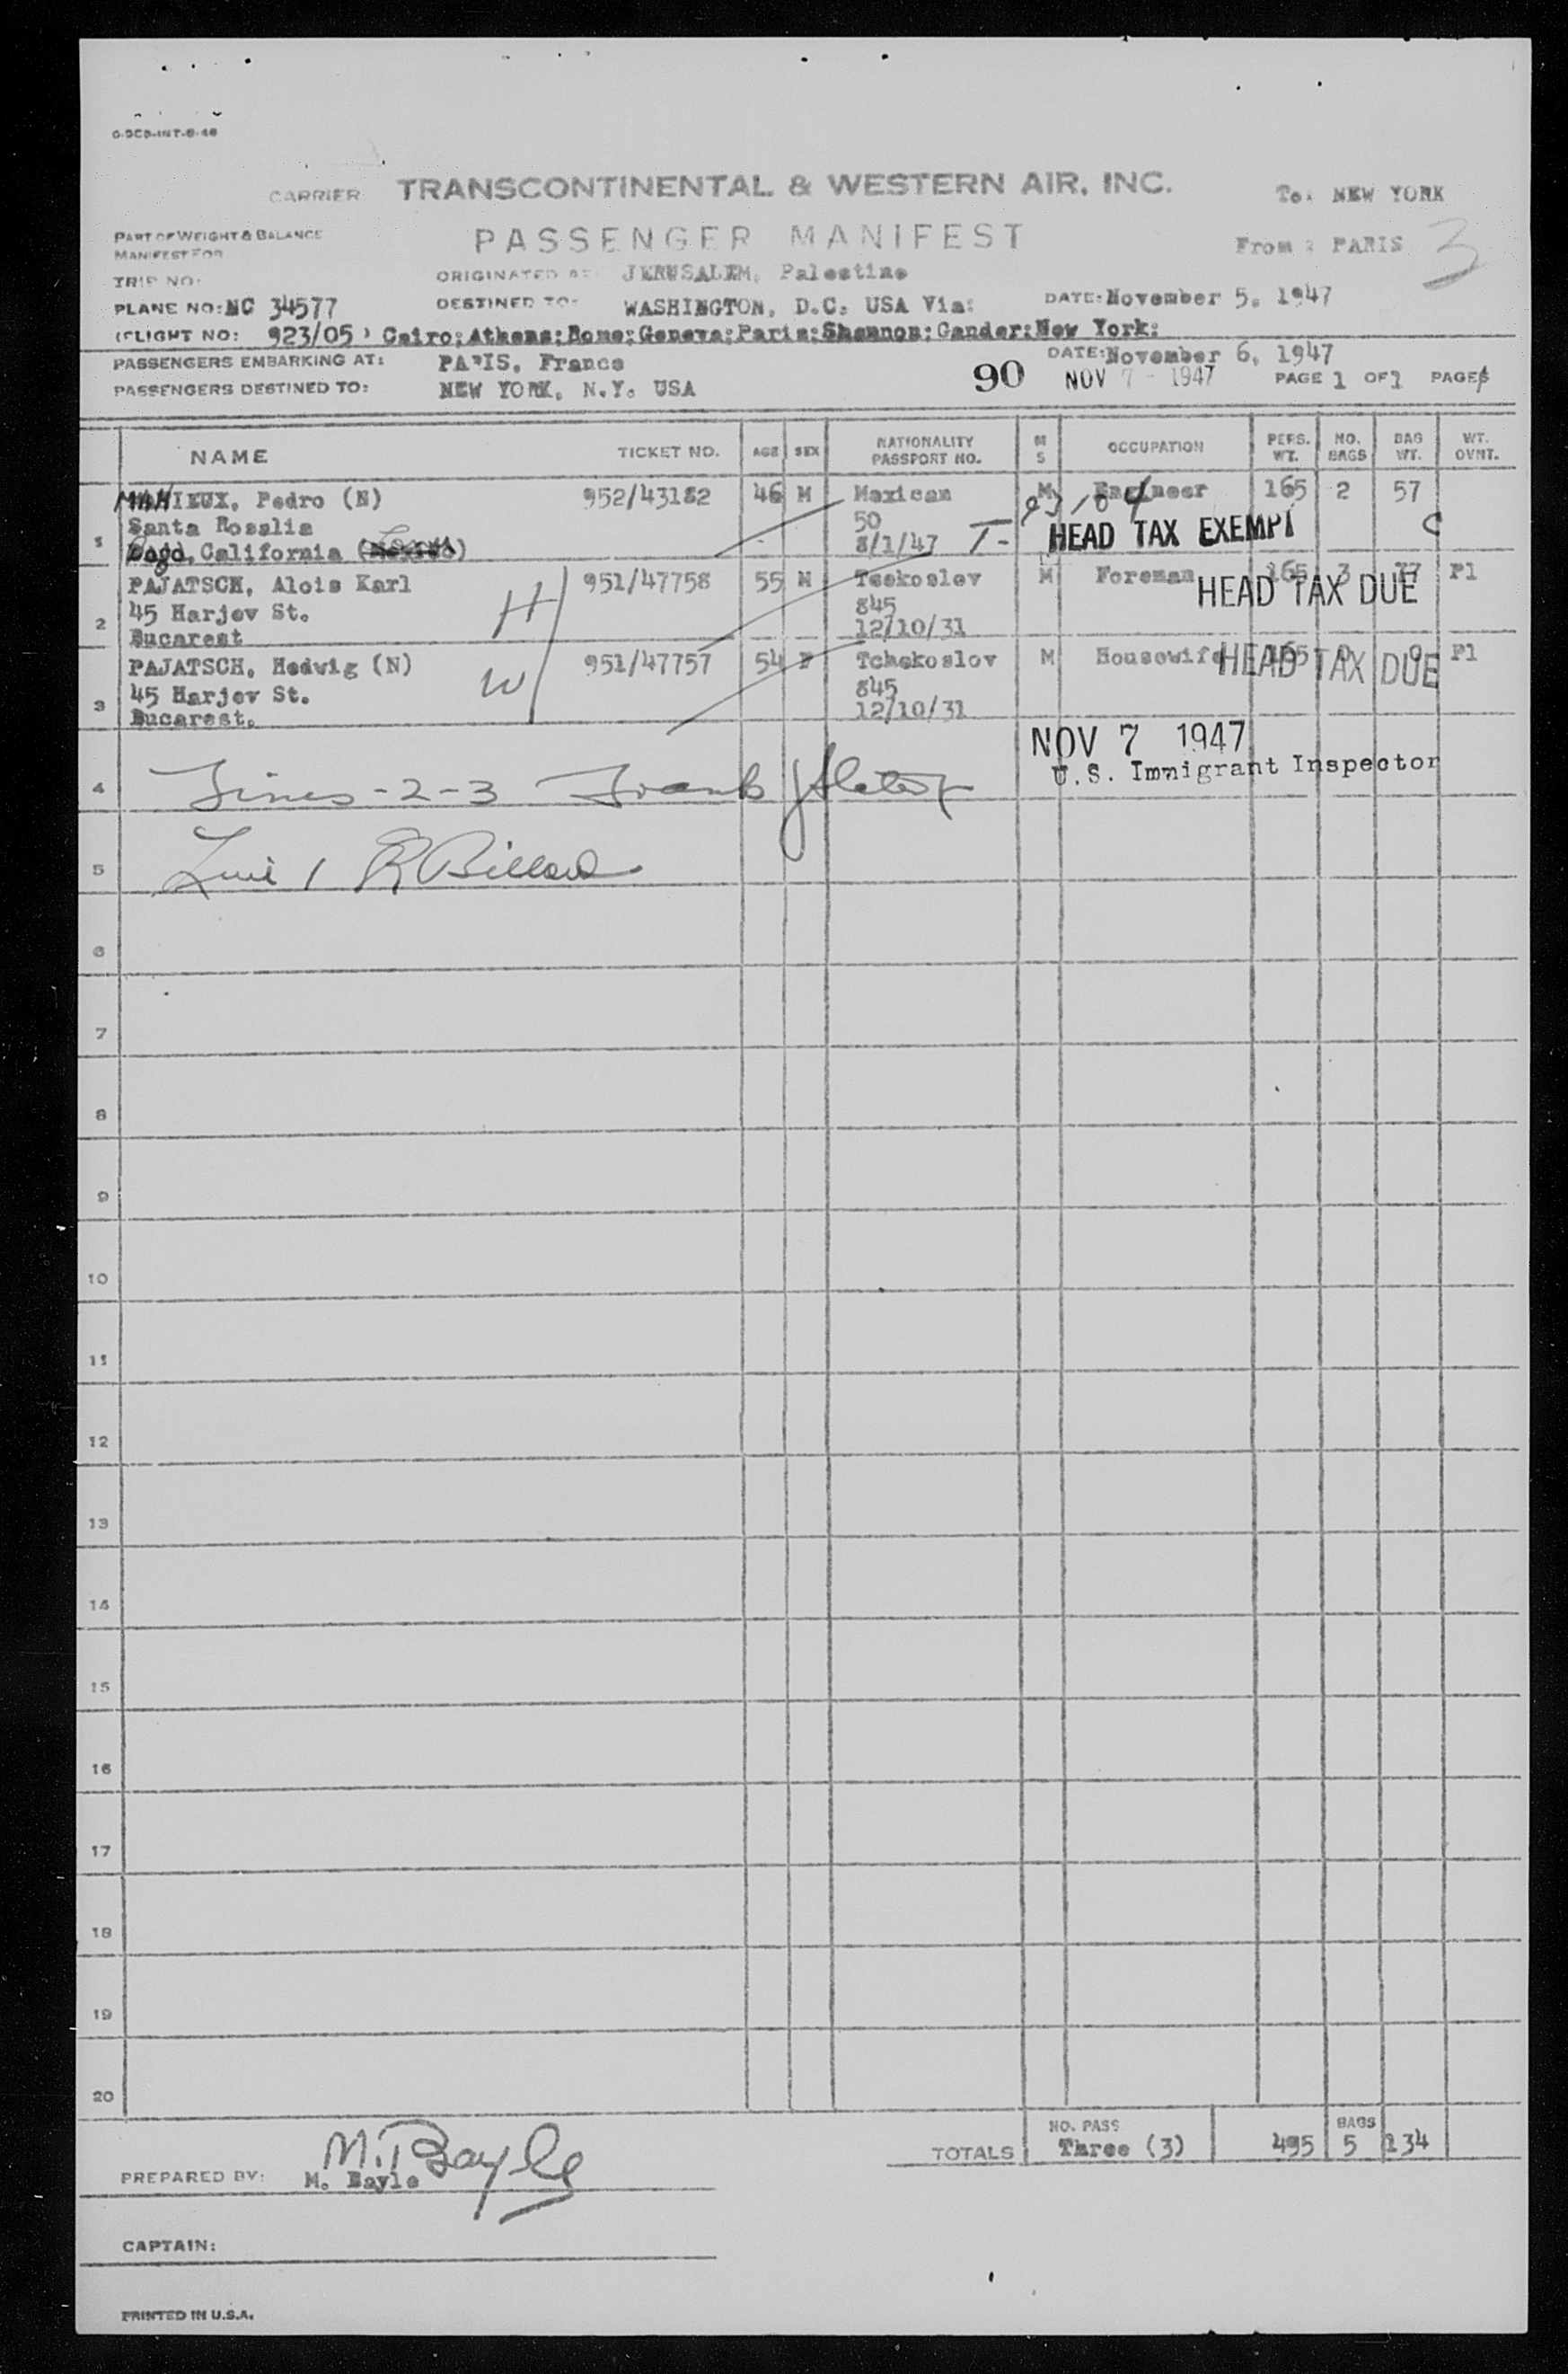 O-SCD-INT-8-46
CARRIER TRANSCONTINENTAL & WESTERN AIR, INC. To: NEW YORK
PART OF WEIGHT & BALANCE MANIFEST FOR
PASSENGER MANIFEST From : PARIS 3
TRIP NO: ORIGINATED AT: JERUSALEM, Palestine
PLANE NO: NC 34577 DESTINED TO: WASHINGTON, D.C. USA Via: DATE: November 5, 1947
(FLIGHT NO: 923/05) Cairo;Athens;Rome;Geneva;Paris;Shannon;Gander;New York:
PASSENGERS EMBARKING AT: PARIS, France DATE: November 6, 1947
PASSENGERS DESTINED TO: NEW YORK, N.Y. USA 90 NOV 7 - 1947 PAGE 1 OF 1 PAGES
NAME TICKET NO. AGE SEX NATIONALITY PASSPORT NO. M S OCCUPATION PERS. WT. NO. BAGS BAG WT. WT. OVNT.
MAHIEUX, Pedro (N) 952/43182 46 M Mexican M Engineer 165 2 57
Santa Rosalia 50
1 California 8/1/47 T- HEAD TAX EXEMPT C
PAJATSCH, Alois Karl 951/47758 55 M Tsekoslov M Foreman 165 3 77 P1
45 Harjev St. H 845 HEAD TAX DUE
2 Bucarest 12/10/31
PAJATSCH, Hedwig (N) 951/47757 54 F Tchekoslov M Housewife 165 0 0 P1
45 Harjev St. W 845 HEAD TAX DUE
3 Bucarest. 12/10/31
NOV 7 1947
U.S. Immigrant Inspector
4 Lines - 2 - 3 Frank J
5 Line 1 R Billard
6
7
8
9
10
11
12
13
14
15
16
17
18
19
20
TOTALS NO. PASS Three (3) 495 BAGS 5 134
M. Bayle
PREPARED BY: M. Bayle
CAPTAIN:
PRINTED IN U.S.A.